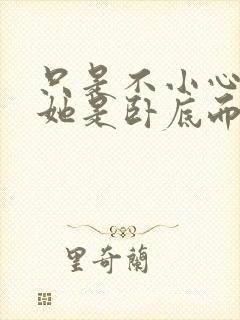 只是不小心
她是卧底而
里奇蘭